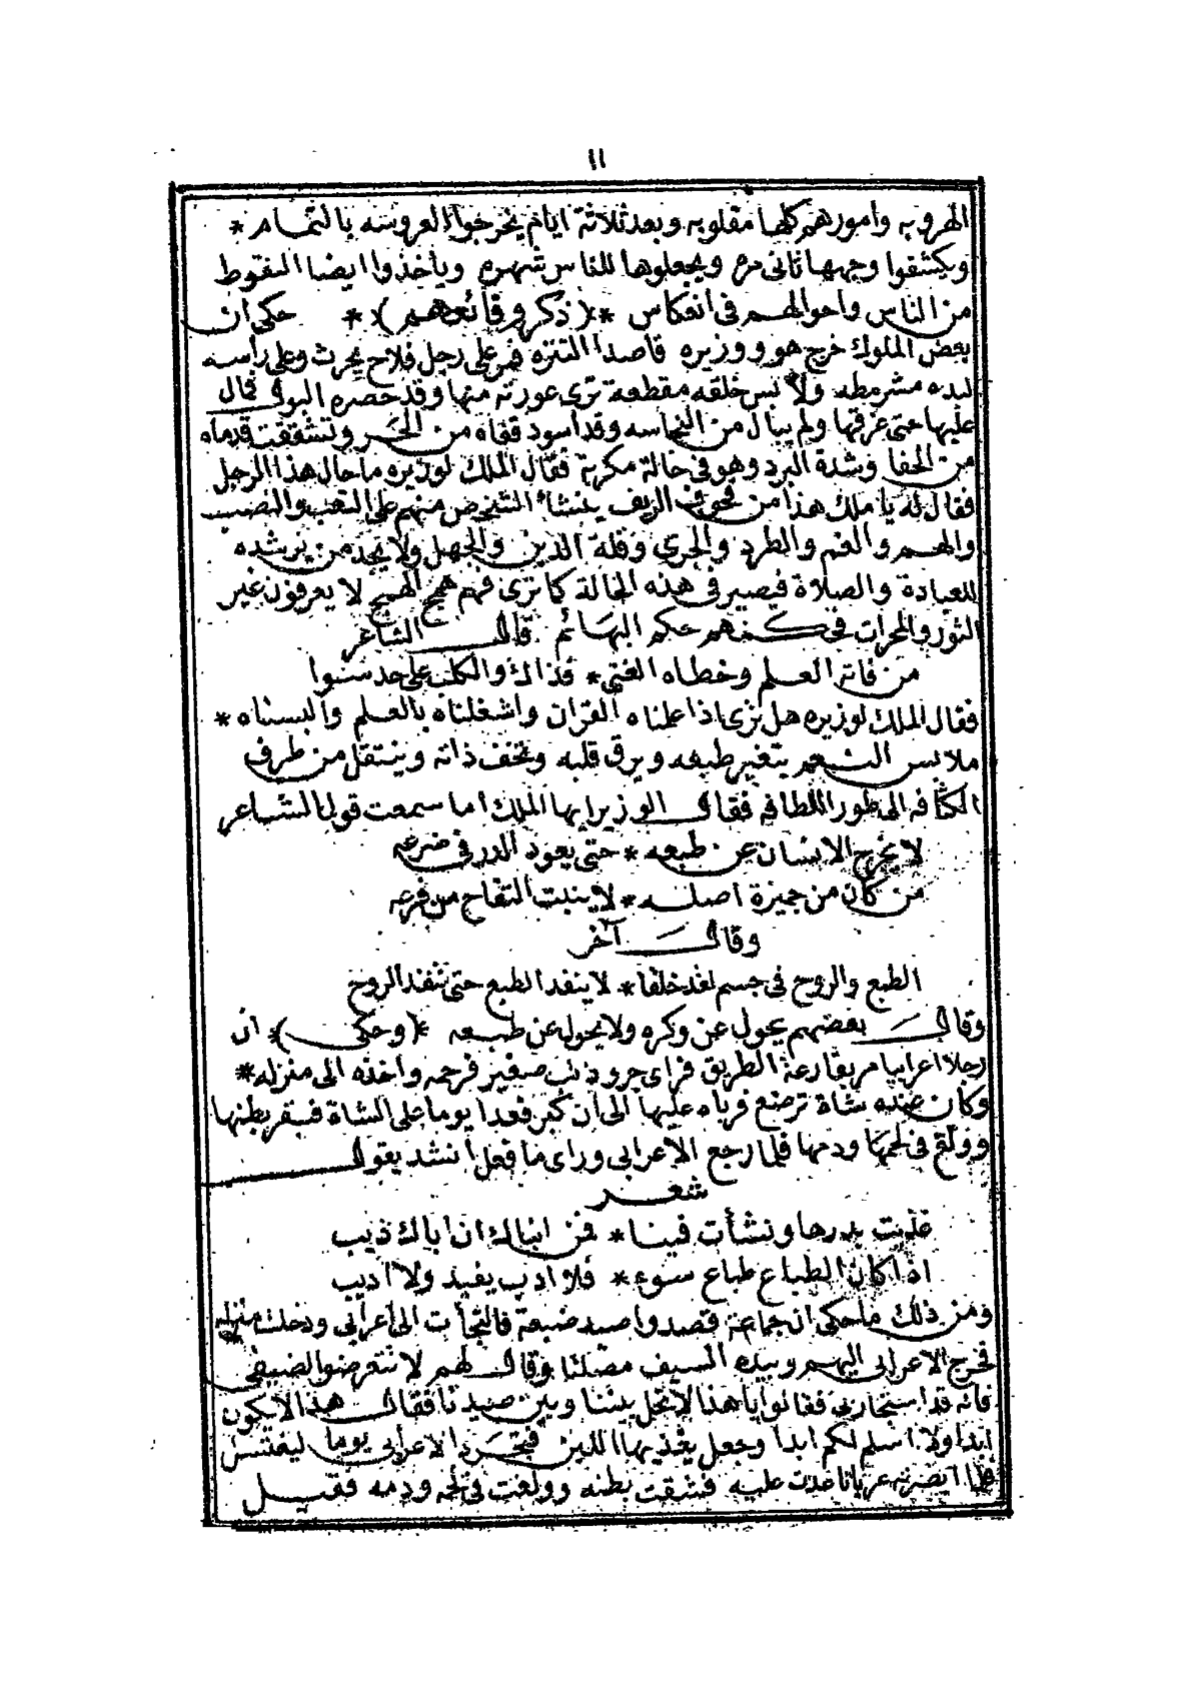 ١١
الهروبه وامورهم كلها مقلوبه وبعد ثلاثة ايام يخرجوا العروسه بالتمام *
ويكشفوا وجهها ثانى مره ويجعلوها للناس شهره وياخذوا ايضا النقوط
من الناس واحوالهم فى انعكاس *(ذكر وقائعهم)* حكى ان
بعض الملوك خرج هو ووزيره قاصدا التنزه فمر على رجل فلاح يحرث وعلى راسه
لبده مشرمطه ولابس خلقه مقطعة ترى عورته منها وقد حصره البول فبال
عليها حتى غرقها ولم يبال من النجاسه وقد اسود قفاه من الحر وتشققت قدماه
من الحفا وشدة البرد وهو فى حالة مكربة فقال الملك لوزيره ما حال هذا الرجل
فقال له يا ملك هذا من قحوف الريف ينشاء الشخص منهم على التعب والنصب
والهم والغم والطرد والجرى وقلة الدين والجهل ولا يجد من يرشده
للعبادة والصلاة فيصير فى هذه الحالة كما ترى فهم همج الهمج لا يعرفون غير
الثور والمحراث فحكمهم حكم البهائم قال الشاعر
من فاته العلم وخطاه الغنى * فذاك والكلب على حد سوا
فقال الملك لوزيره هل ترى اذا علمناه القران واشغلناه بالعلم والبسناه *
ملابس النعم يتغير طبعه ويرق قلبه وتخف ذاته وينتقل من طرف
الكثافه الى طور اللطافه فقال الوزير ايها الملك اما سمعت قول الشاعر
لا يخرج الانسان عن طبعه * حتى يعود الدر فى ضرعه
من كان من جميزة اصله * لا ينبت التفاح من فرعه
وقال آخر
الطبع والروح فى جسم لقد خلقا * لا ينفد الطبع حتى تنفد الروح
وقال بعضهم يحول عن وكره ولا يحول عن طبعه *(وحكى)* ان
رجلا اعرابيا مر بقارعة الطريق فراى جرو ذيب صغير فرحمه واخذه الى منزله *
وكان عنده شاة ترضع فرباه عليها الى ان كبر فعدا يوما على الشاة فبقر بطنها
وولغ فى لحمها ودمها فلما رجع الاعرابى وراى ما فعل انشد يقول
شعر
غذيت بدرها ونشأت فينا * فمن انباك ان اباك ذيب
اذا كان الطباع طباع سوء * فلا ادب يفيد ولا اديب
ومن ذلك ما حكى ان جماعة قصدوا صيد ضبعة فالتجأت الى اعرابى ودخلت منزله
فخرج الاعرابى اليهم وبيده السيف مصلتا وقال لهم لا تتعرضوا لضيفى
فانه قد استجار بى فقالوا يا هذا لا تحل بيننا وبين صيدنا فقال هذا لا يكون
ابدا ولا اسلم لكم ابدا وجعل يغذيها اللبن فتجرد الاعرابى يوما ليغتسل
فلما ابصرته عريانا عدت عليه فشقت بطنه وولغت فى لحمه ودمه فقيل